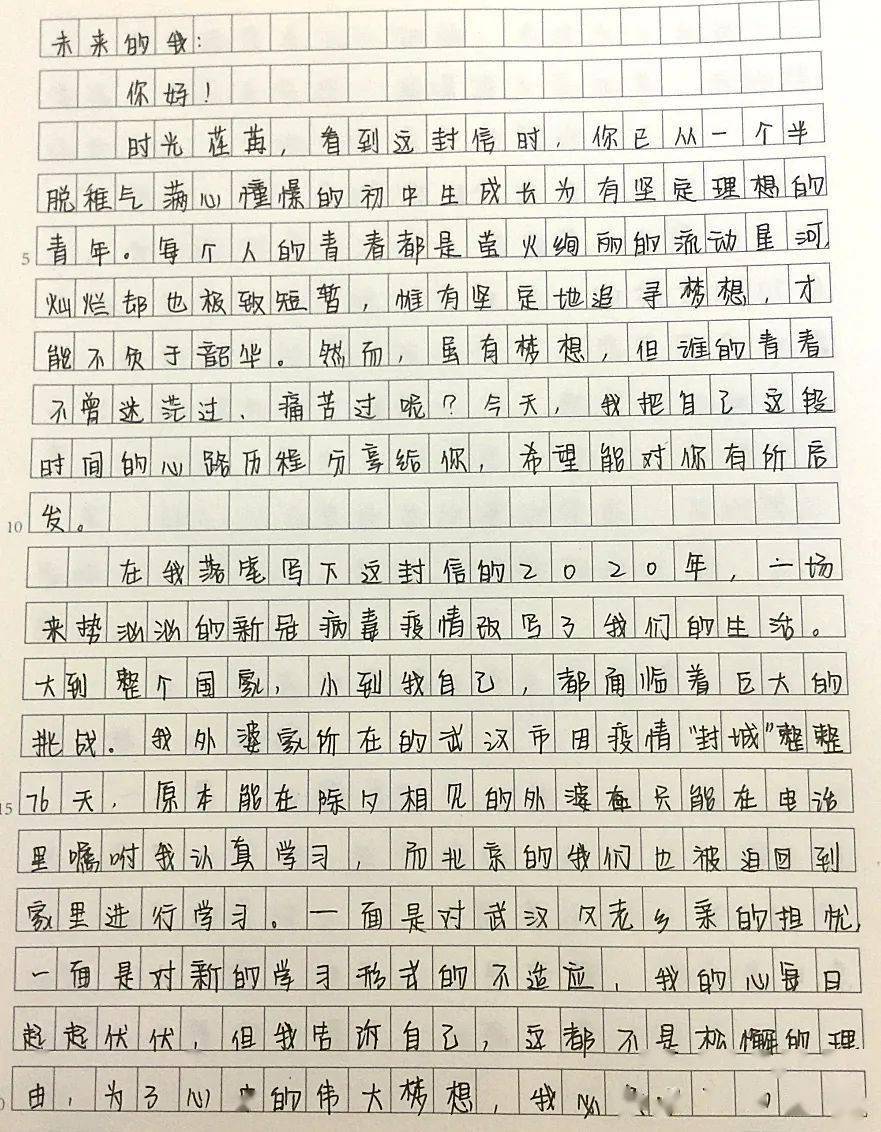 未来的我:
你好!
时光荏苒，看到这封信时，你已从一个半
脱稚气满心憧憬的初中生成长为有坚定理想的
5 青年。每个人的青春都是萤火绚丽的流动星河，
灿烂却也极致短暂，惟有坚定地追寻梦想，才
能不负于韶华。然而，虽有梦想，但谁的青春
不曾迷茫过、痛苦过呢？今天，我把自己这段
时间的心路历程分享给你，希望能对你有所启
10 发。
在我落笔写下这封信的2020年，一场
来势汹汹的新冠病毒疫情改写了我们的生活。
大到整个国家，小到我自己，都面临着巨大的
挑战。我外婆家所在的武汉市因疫情“封城”整整
15 76天，原本能在除夕相见的外婆只能在电话
里嘱咐我认真学习，而北京的我们也被迫回到
家里进行学习。一面是对武汉父老乡亲的担忧，
一面是对新的学习形式的不适应，我的心每日
起起伏伏，但我告诉自己，这都不是松懈的理
由，为了心的伟大梦想，我